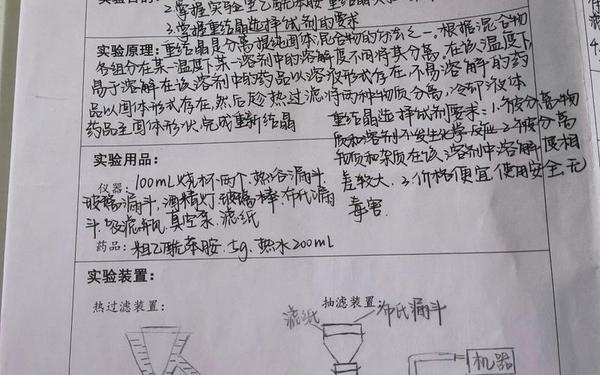 2.掌握实验室乙酰苯胺重结晶
3.掌握重结晶选择试剂的要求
实验原理:重结晶是分离提纯固体混合物的方法之一,根据混合物
各组分在某一温度下,某一溶剂中的溶解度不同将其分离.在该温度下,
易于溶解在该溶剂中的药品以溶液形式存在,不易溶解的药
品以固体形式存在,然后趁热过滤将两种物质分离,冷却液体
药品至固体形状完成重新结晶
重结晶选择试剂要求:1.被分离物
质和溶剂不发生化学反应 2.被分离
物质和杂质在该溶剂中溶解度相
差较大.3.价格便宜,使用安全,无
毒害.
实验用品:
仪器:100mL烧杯两个.热浴漏斗.
玻璃漏斗,酒精灯.玻璃棒.布氏漏
斗.吸滤瓶.真空泵.滤纸
药品:粗乙酰苯胺.5g.热水200mL
实验装置:
热过滤装置:
抽滤装置:
滤纸
布氏漏斗
机器